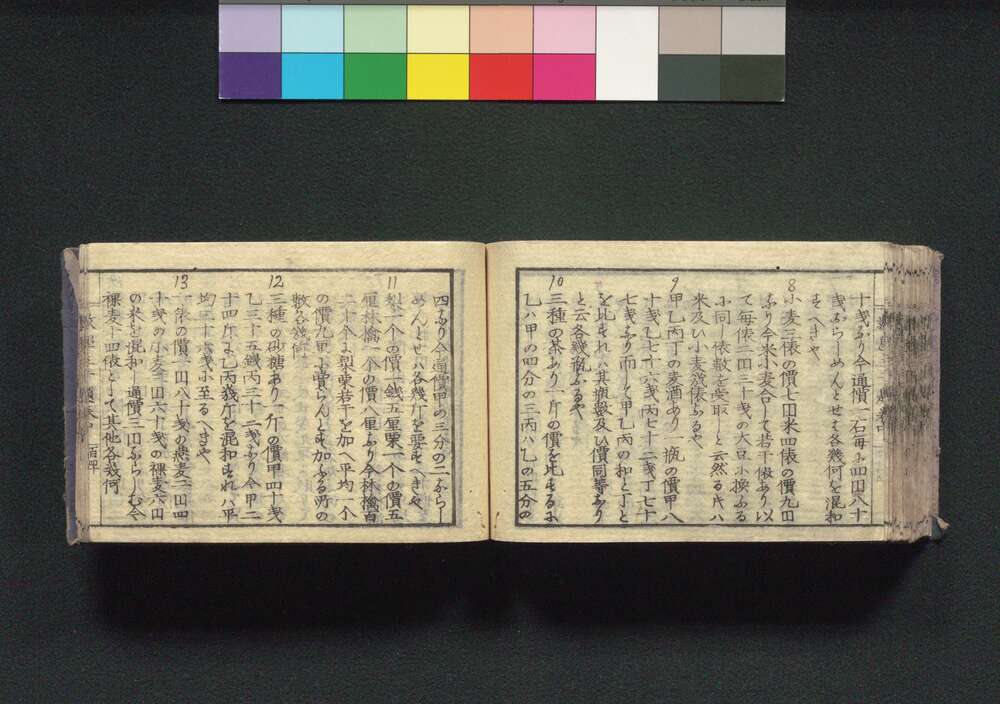 十戔なり今通價一石毎に四円八十
戔ならしめんとせは各幾何を混和
すへきや
8
小麦三俵の價七円米四俵の價九円
なり今米小麦合して若干俵あり以
て毎俵二円三十戔の大豆に換ふる
に同し俵数を受取しと云然る片ハ
米及ひ小麦幾俵なるや
9
甲乙丙丁の麦酒あり一瓶の價甲八
十戔乙七十六戔丙七十二戔丁七十
七戔なり而して甲乙丙の和と丁と
を比すれは其瓶数及ひ價同等なり
と云各幾瓶なるや
10
三種の茶あり一斤の價を比するに
乙ハ甲の四分の三丙ハ乙の五分の
四なり今通價甲の三分の二ならし
めんとせハ各幾斤を要すへきや
11
梨一个の價一銭五厘栗一个の價五
厘林檎一个の價八厘なり今林檎百
二十个に梨栗若干を加へ平均一个
の價九厘に賣らんとす加ふる所の
数各幾何
12
三種の砂糖あり一斤の價甲四十戔
乙三十五戔丙三十二戔なり今甲二
十四斤に乙丙幾斤を混和すれハ平
均三十六戔に至るへきや
13
一俵の價二円八十戔の燕麦二円四
十戔の小麦三円六十戔の裸麦六円
の米を混和し通價三円ならしむ今
裸麦十四俵として其他各幾何